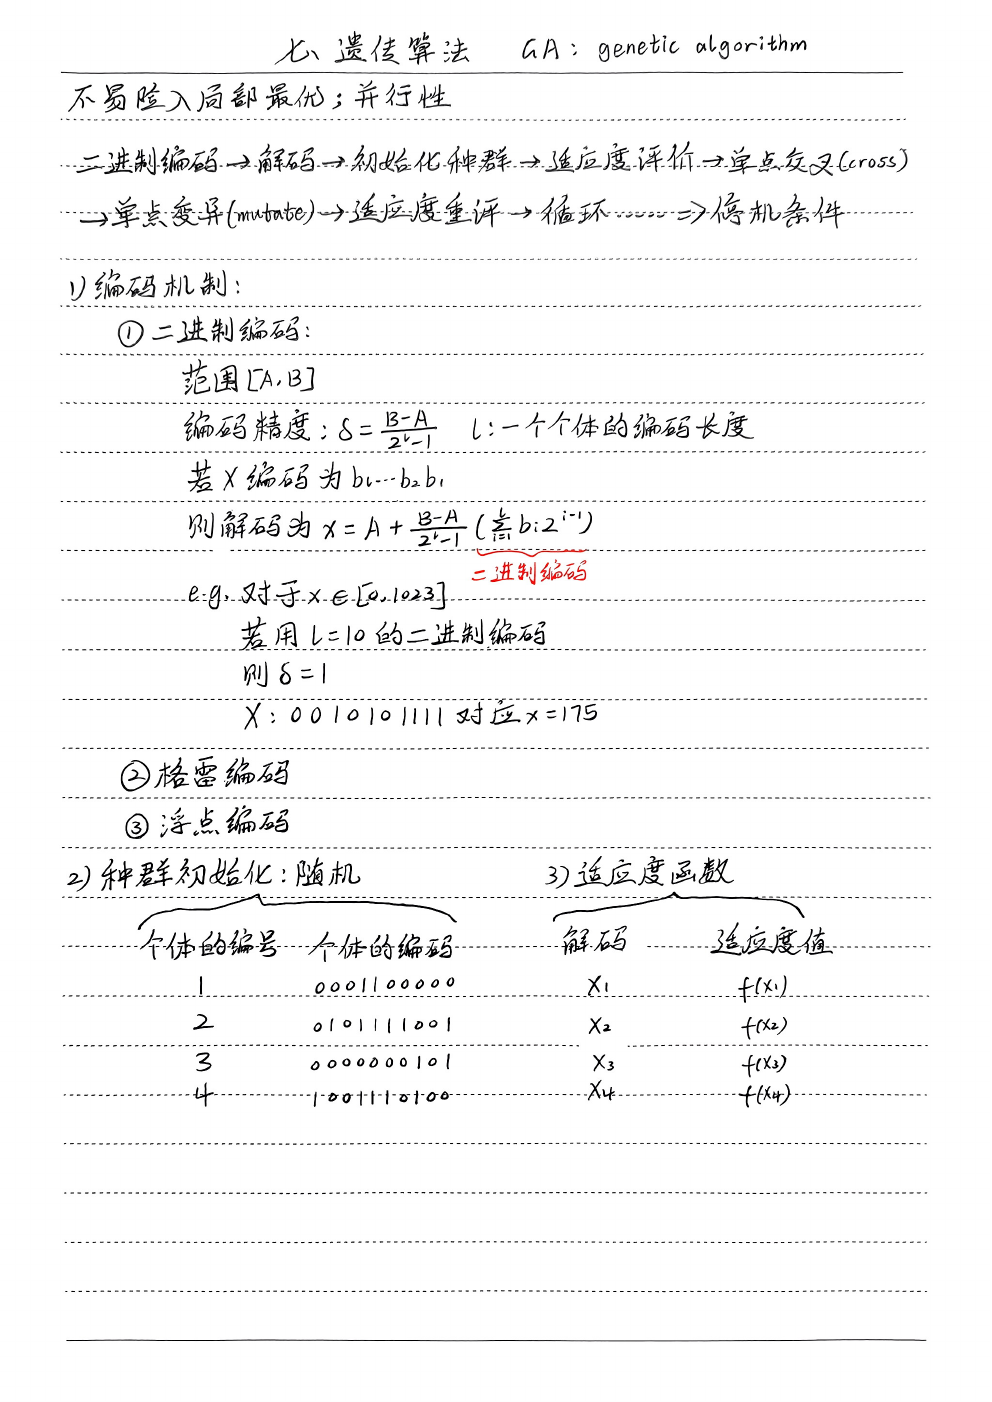 七、遗传算法 GA: genetic algorithm
不易陷入局部最优;并行性
二进制编码→解码→初始化种群→适应度评价→单点交叉(cross)
→单点变异(mutate)→适应度重评→循环……⇒停机条件
1)编码机制:
①二进制编码:
范围[A,B]
编码精度:δ=(B-A)/(2^l-1) l:一个个体的编码长度
若X编码为 bl…b2b1
则解码为 x=A+(B-A)/(2^l-1)(∑_{i=1}^{l} bi2^{i-1})
二进制编码
e.g. 对于x∈[0,1023]
若用l=10的二进制编码
则δ=1
X:0010101111对应x=175
②格雷编码
③浮点编码
2)种群初始化:随机 3)适应度函数
个体的编号 个体的编码 解码 适应度值
1 0001100000 X1 f(X1)
2 0101111001 X2 f(X2)
3 0000000101 X3 f(X3)
4 1001110100 X4 f(X4)